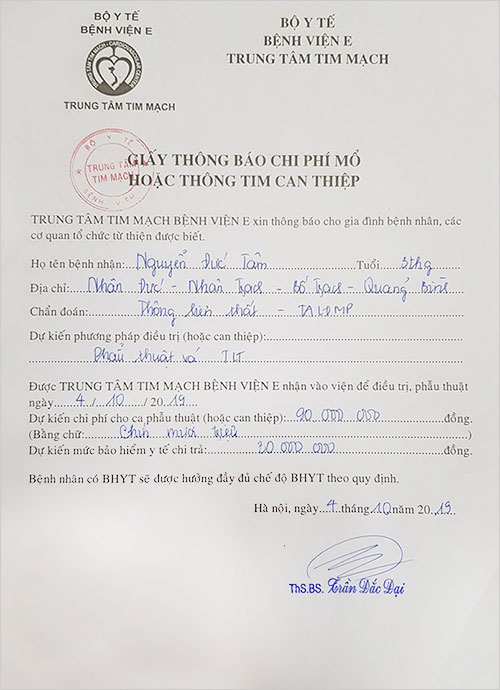 BỘ Y TẾ
BỆNH VIỆN E
TRUNG TÂM TIM MẠCH - CARDIOVASCULAR CENTER
TRUNG TÂM TIM MẠCH
BỘ Y TẾ
BỆNH VIỆN E
TRUNG TÂM TIM MẠCH
BỘ Y TẾ
TRUNG TÂM
TIM MẠCH
BỆNH VIỆN
GIẤY THÔNG BÁO CHI PHÍ MỔ
HOẶC THÔNG TIM CAN THIỆP
TRUNG TÂM TIM MẠCH BỆNH VIỆN E xin thông báo cho gia đình bệnh nhân, các
cơ quan tổ chức từ thiện được biết.
Họ tên bệnh nhân: Nguyễn Đức Tâm Tuổi 3thg
Địa chỉ: Nhân Đức - Nhân Trạch - Bố Trạch - Quảng Bình
Chẩn đoán: Thông liên thất - TALĐMP
Dự kiến phương pháp điều trị (hoặc can thiệp):
Phẫu thuật vá TLT
Được TRUNG TÂM TIM MẠCH BỆNH VIỆN E nhận vào viện để điều trị, phẫu thuật
ngày 4 / 10 / 2019
Dự kiến chi phí cho ca phẫu thuật (hoặc can thiệp): 90 000 000 đồng.
(Bằng chữ: Chín mươi triệu)
Dự kiến mức bảo hiểm y tế chi trả: 30 000 000 đồng.
Bệnh nhân có BHYT sẽ được hưởng đầy đủ chế độ BHYT theo quy định.
Hà nội, ngày 4 tháng 10 năm 2019
ThS.BS. Trần Đắc Đại